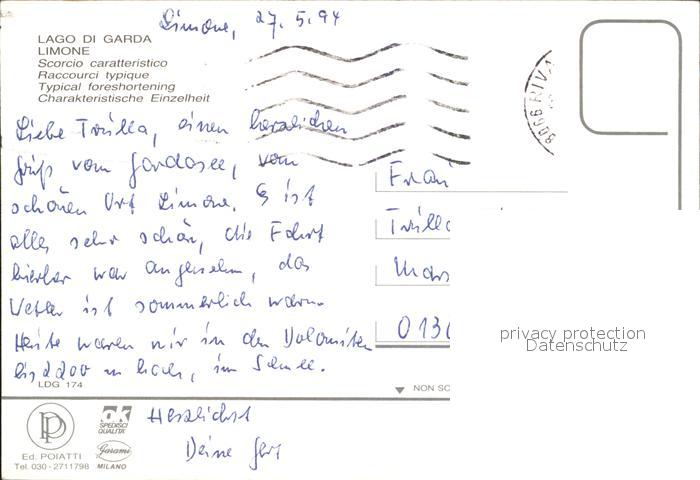 Limone, 27.5.94
LAGO DI GARDA
LIMONE
Scorcio caratteristico
Raccourci typique
Typical foreshortening
Charakteristische Einzelheit
Liebe Trulla, einen herzlichen
Gruß vom Gardasee, vom
schönen Ort Limone. Es ist
alles sehr schön, die Fahrt
hierher war angenehm, das
Wetter ist sommerlich warm.
Heute waren wir in den Dolomiten
bis 2200 m hoch, im Schnee.
LDG 174
Herzlichst
Deine
Frau
Trulla
0130
privacy protection
Datenschutz
NON SC
ok
SPEDISCI
QUALITA'
Garami
MILANO
Ed. POIATTI
Tel. 030 - 2711798
RIVA